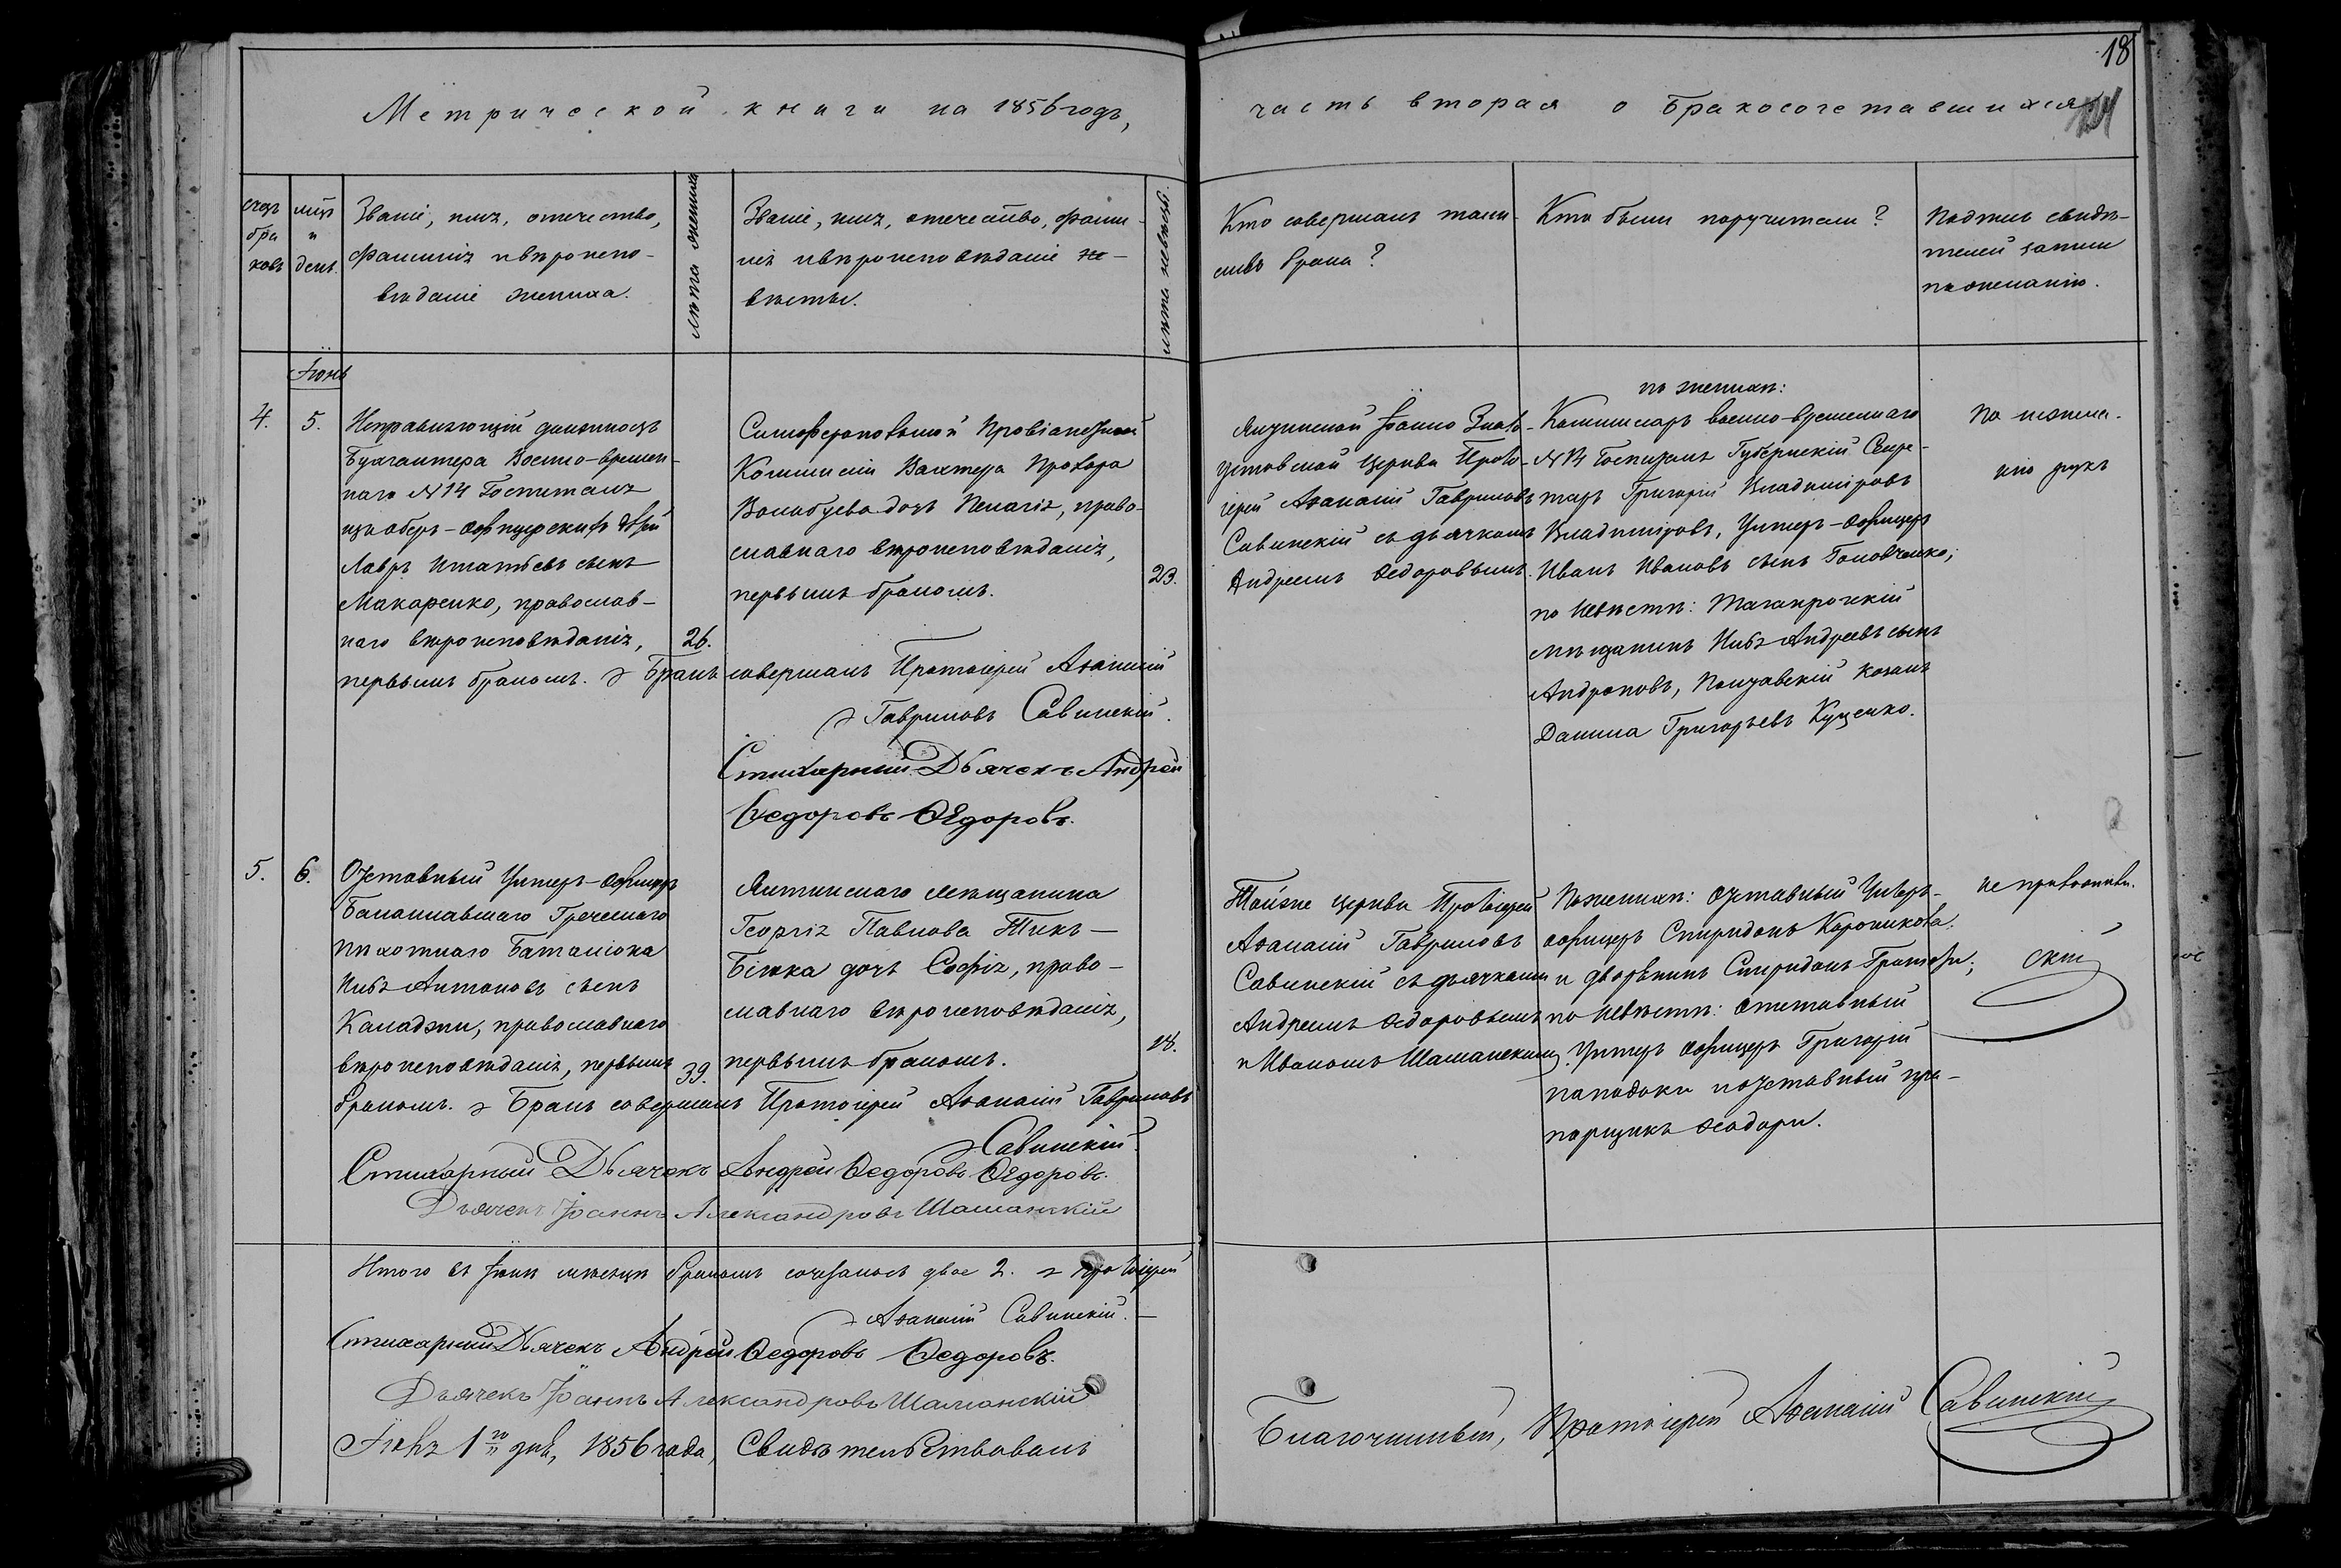 18
Метрической книги на 1856 годъ,
часть вторая о бракосочетавшихся
счетъ браковъ
мѣц. и день.
Званіе, имя, отечество,
фамилія и вѣроиспо-
вѣданіе жениха.
лѣта жениха
Званіе, имя, отечество, фами-
лія и вѣроисповѣданіе не-
вѣсты.
лѣта невѣсты.
Кто совершалъ таин-
ство брака?
Кто были поручители?
Подпись свидѣ-
телей записи
по желанію.
Іюнь
4. 5.
Исправляющій должность
Бухгалтера Военно-времен-
наго N 14 Госпиталя
изъ оберъ-офицерскихъ дѣтей
Лавръ Игнатьевъ сынъ
Макаренко, православ-
наго вѣроисповѣданія, 26.
первымъ бракомъ.
Симферопольской Провіантской
Коммисіи Вахтера Прохора
дочь Пелагія, право-
славнаго вѣроисповѣданія,
первымъ бракомъ.
23.
Бракъ совершалъ Протоіерей Аѳанасій
Гавриловъ Савинскій.
Стихарный Дьячекъ Андрей
Ѳедоровъ Ѳедоровъ.
Ялтинской Іоанно Злато-
устовской Церкви Прото-
іерей Аѳанасій Гавриловъ
Савинскій съ дьячкомъ
Андреемъ Ѳедоровымъ.
по женихѣ:
Коммисаръ военно-временнаго
N 14 Госпиталя Губернскій Секре-
тарь Григорій Владиміровъ
Владиміровъ, Унтеръ-Офицеръ
Иванъ Ивановъ сынъ Головченко;
по Невѣстѣ: Таганрогскій
мѣщанинъ Илья Андреевъ сынъ
Андроновъ, Полтавскій козакъ
Данила Григорьевъ Куценко.
По нежела-
нію рукъ
5. 6.
Отставный Унтеръ-Офицеръ
Балаклавскаго Греческаго
пѣхотнаго Баталіона
Илья Антоновъ сынъ
Каладжи, православнаго
вѣроисповѣданія, первымъ 39.
бракомъ.
Ялтинскаго мѣщанина
Георгія Павлова
дочь Софія, право-
славнаго вѣроисповѣданія,
первымъ бракомъ.
18.
Бракъ совершалъ Протоіерей Аѳанасій Гавриловъ
Савинскій.
Стихарный Дьячекъ Андрей Ѳедоровъ Ѳедоровъ.
Дьячекъ Іоаннъ Александровъ Шаманскій
Той же церкви Протоіерей
Аѳанасій Гавриловъ
Савинскій съ дьячками
Андреемъ Ѳедоровымъ
и Иваномъ Шаманскимъ
По женихѣ: отставный Унтеръ-
офицеръ Спиридонъ
и дворянинъ Спиридонъ
по Невѣстѣ: отставный
Унтеръ офицеръ Григорій
и отставный пра-
порщикъ Ѳеодори.
не приложили.
Итого въ Іюнѣ мѣсяцѣ бракомъ сочетались двое 2. Протоіерей
Аѳанасій Савинскій.
Стихарный Дьячекъ Андрей Ѳедоровъ Ѳедоровъ.
Дьячекъ Іоаннъ Александровъ Шаманскій
Іюля 1го дня, 1856 года, Свидѣтельствовалъ
Благочинный, Протоіерей Аѳанасій Савинскій